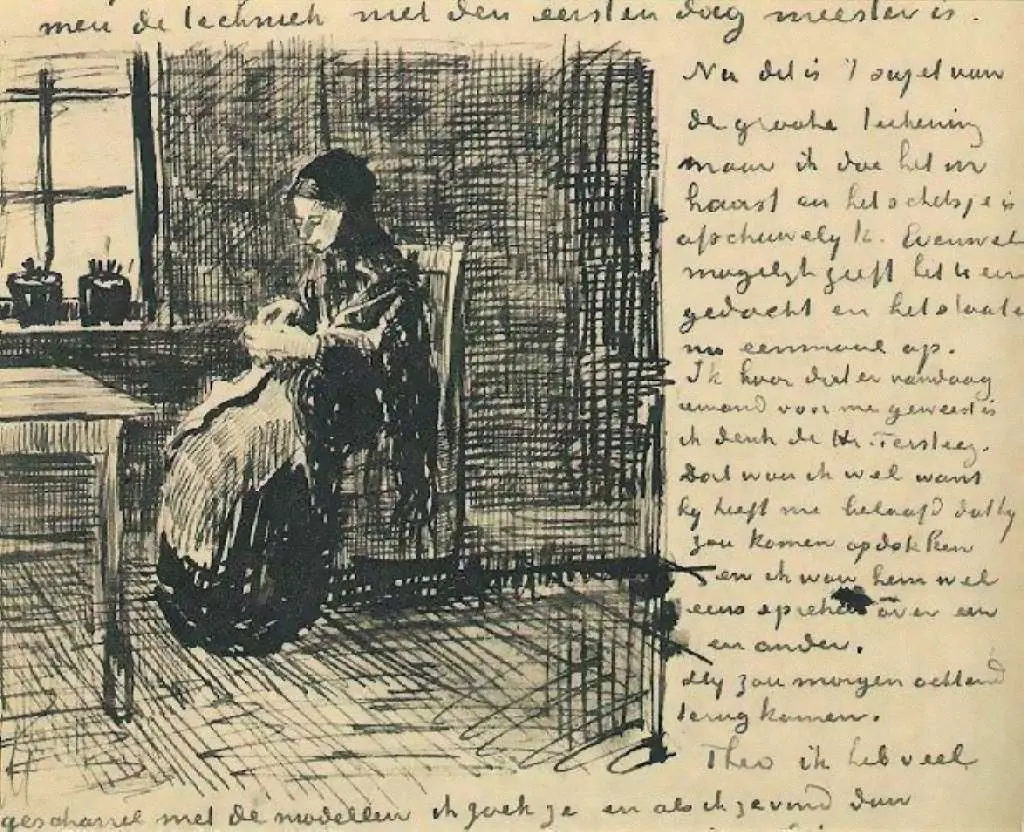 men de techniek niet den eersten dag meester is.
Nu dit is 't van
de groote teekening
maar ik doe het in
haast en het schetsje is
afschuwelijk. Evenwel
mogelijk geeft het U een
gedacht en het staat er
nu eenmaal op.
Ik hoor dat er vandaag
iemand voor me geweest is
ik denk de Hr. Tersteeg.
Dat wou ik wel want
hij heeft me beloofd dat hij
zou komen opdokken
en ik wou hem wel
eens spreken over een
en ander.
Hij zou morgen ochtend
terug komen.
Theo ik heb veel
gescharrel met de modellen ik zoek ze en als ik ze vind dan